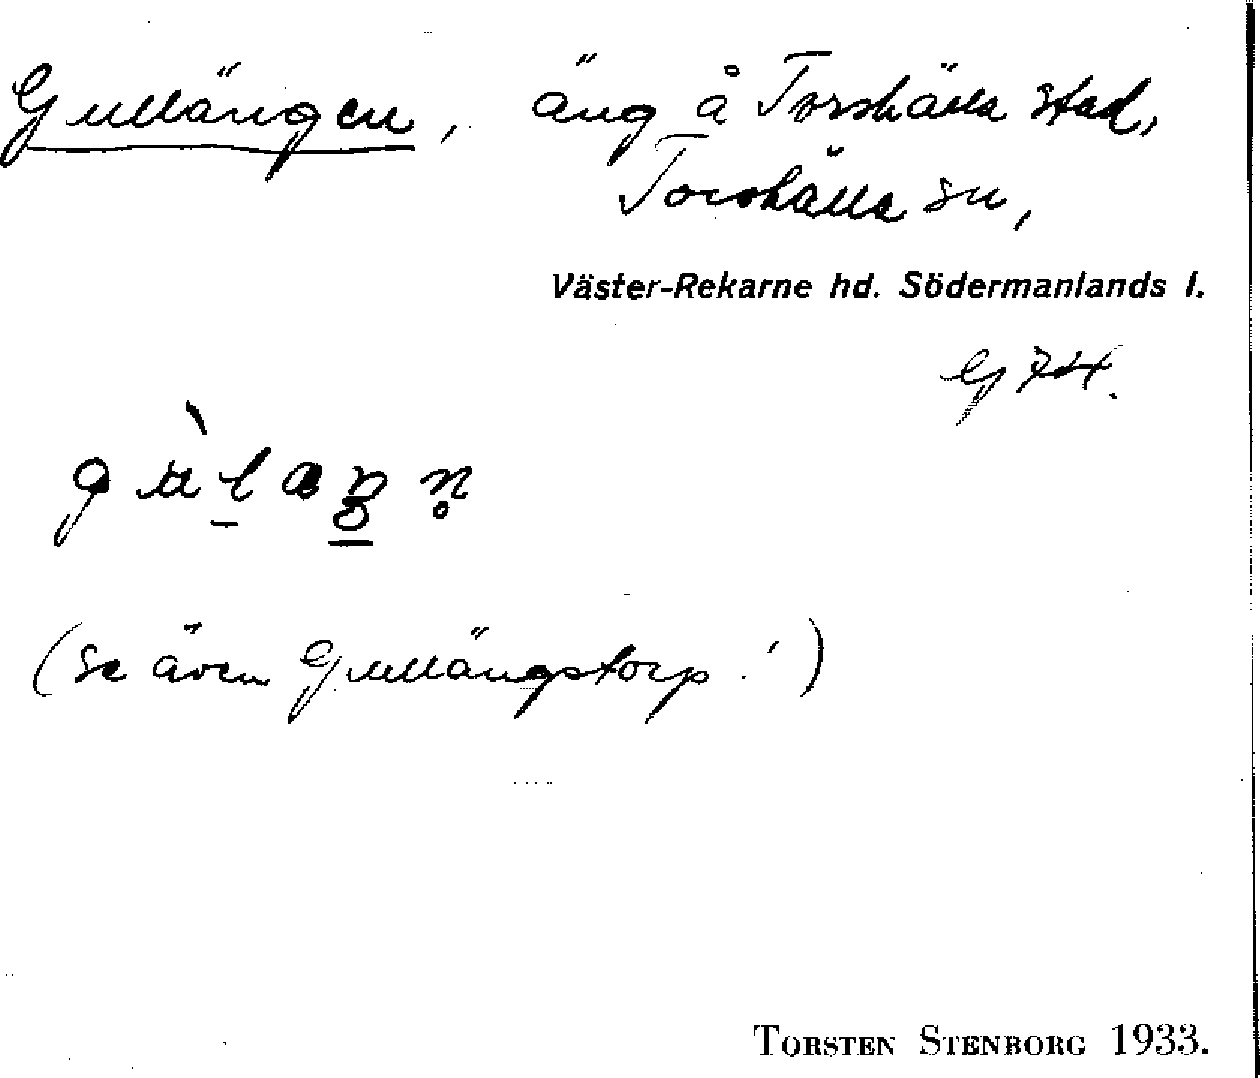 Gullängen, äng å Torshälla stad,
Torshälla sn,
Väster-Rekarne hd. Södermanlands l.
G 74.
(se även Gullängstorp!)
TORSTEN STENBORG 1933.